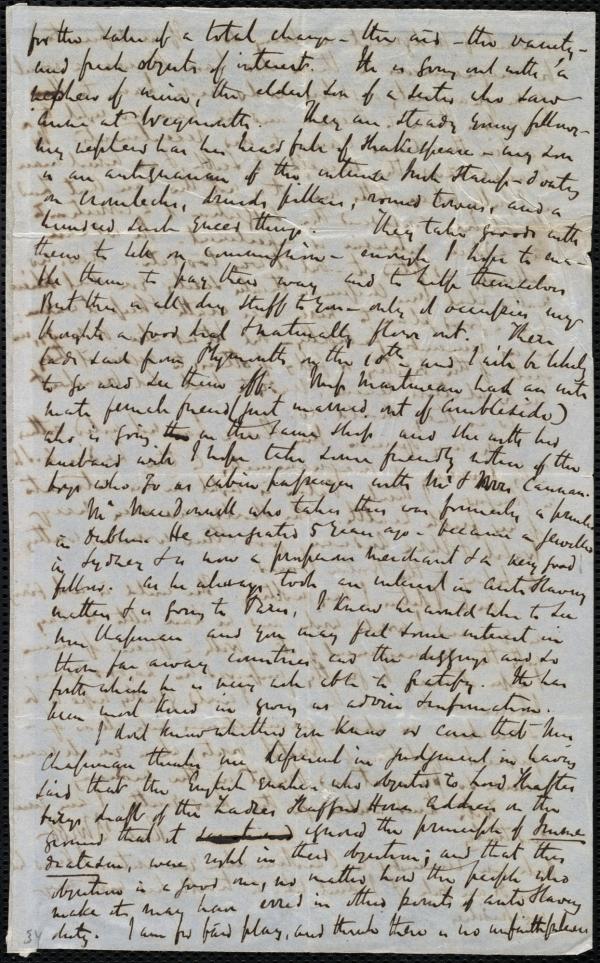 for the sake of a total change - the air - the variety -
and fresh objects of interest. He is going out with a
nephew of mine, the eldest son of a sister who saw
Annie at Weymouth. They are steady young fellows -
my nephew has his head full of Shakespeare - my son
is an antiquarian of the intense Irish stamp - doating
on cromlechs, druids pillars, round towers, and a
hundred such queer things. They take goods with
them to sell on commission - enough I hope to ena-
ble them to pay their way and to help themselves
But this is all dry stuff to you - only it occupies my
thoughts a good deal & naturally flows out. These
lads sail from Plymouth on the 10th and I will be likely
to go and see them off. Miss Martineau had an inti
mate female friend (just married out of Ambleside)
who is going in the same ship and she with her
husband will I hope take some friendly notice of the
boys who go as cabin passengers with Mr & Mrs
Mr MacDonnell who takes this was formerly a
in Dublin. He emigrated 5 years ago - became a jeweller
in Sydney & is now a prosperous merchant & a very good
fellow. As he always took an interest in anti Slavery
matters & is going to Paris, I knew he would like to see
Mrs Chapman and you may feel some interest in
those far away countries and the diggings and so
forth which he is very well able to gratify. He has
been most kind in giving us advice & information.
I don't know whether you know or care that Mrs
Chapman thinks me deficient in judgment in having
said that the English Quakers who objected to Lord Shaftes
burys draft of the Ladies Stafford House Address on the
ground that it ignored the principle of Imme
diatism, were right in their objection; and that this
objection is a good one, no matter how the people who
make it may have erred in other points of anti Slavery
duty. I am for fair play, and think there is no unfaithfulness